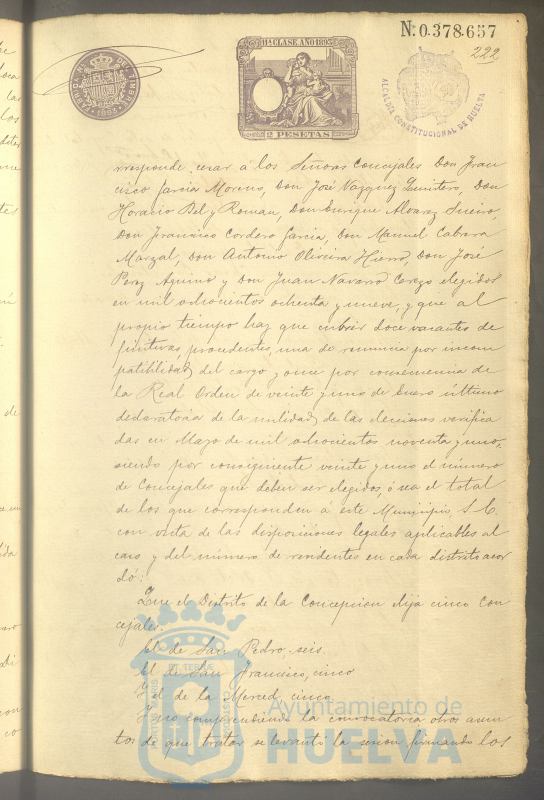 Nº 0.378.657
222
11ª CLASE AÑO 1893
2 PESETAS
FABRICA NAL DEL TIMBRE
1893
ALCALDIA CONSTITUCIONAL DE HUELVA
rresponde cesar á los Señores Concejales Don Fran
cisco Garcia Moreno, Don José Vazquez Quintero, Don
Horacio Bel y Roman, Don Enrique Alvarez Sueiro,
Don Francisco Cordero Garcia, Don Manuel Cabrera
Marzal, Don Antonio Oliveira Hierro, Don José
Perez Aquino y Don Juan Navarro Cerezo elegidos
en mil ochocientos ochenta y nueve, y que al
propio tiempo hay que cubrir doce vacantes de
finitivas, procedentes, una de renuncia por incom
patibilidad del cargo y once por consecuencia de
la Real Orden de veinte y uno de Enero último
declaratoria de la nulidad de las elecciones verifica
das en Mayo de mil ochocientos noventa y uno,
siendo por consiguiente veinte y uno el número
de Concejales que deben ser elegidos, ó sea el total
de los que corresponden á este Municipio, S. E.
con vista de las disposiciones legales aplicables al
caso y del número de residentes en cada distrito acor
dó:
Que el Distrito de la Concepcion elija cinco Con
cejales.
El de San Pedro, seis.
El de San Francisco, cinco
Y el de la Merced, cinco.
Y no comprendiendo la convocatoria otros asun
tos de que tratar se levantó la sesion firmando los
Ayuntamiento de
HUELVA